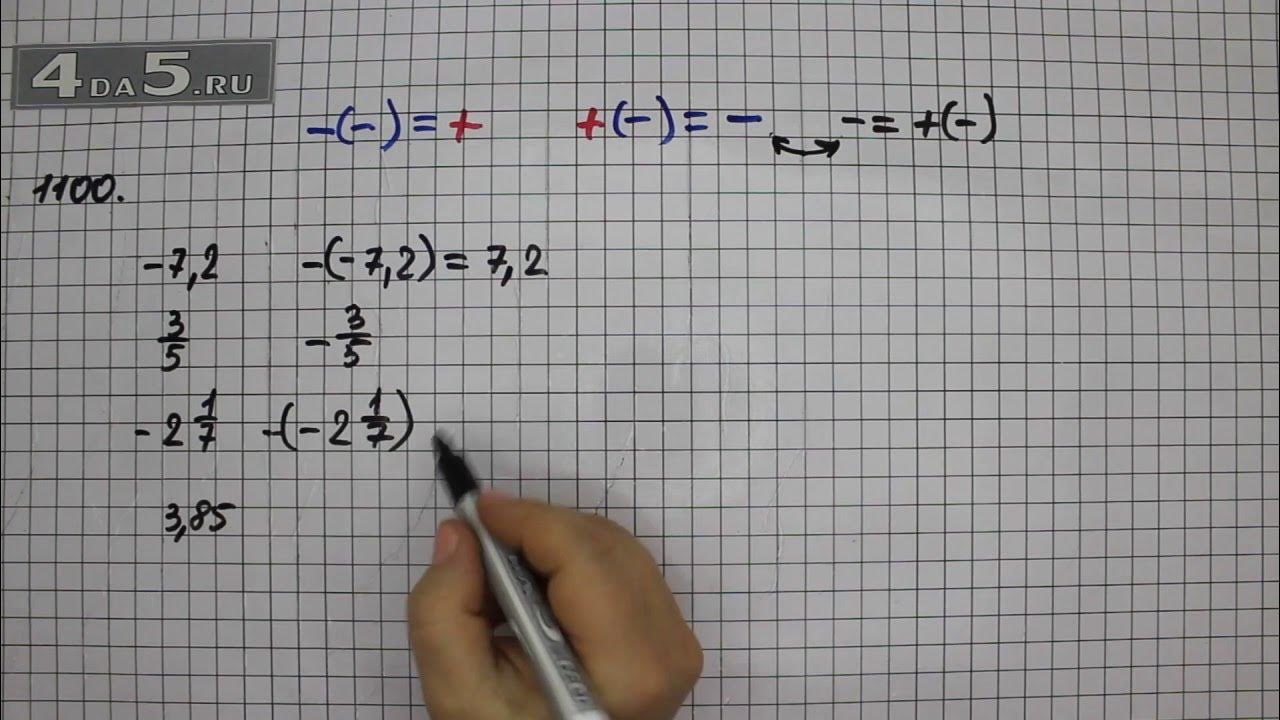 4DA5.RU
-(-) = +    +(-) = -    - = +(-)
1100.
-7,2    -(-7,2) = 7,2
3/5    -3/5
-2 1/7    -(-2 1/7)
3,85